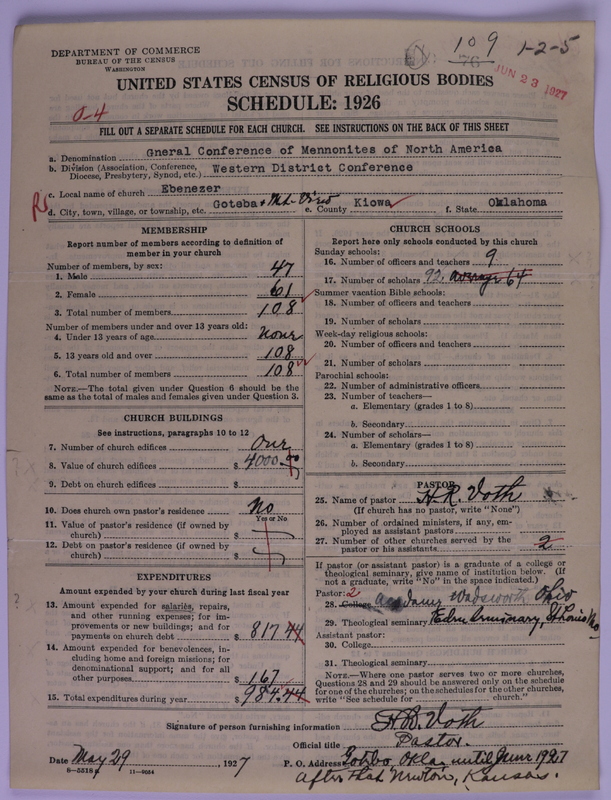 DEPARTMENT OF COMMERCE
BUREAU OF THE CENSUS
WASHINGTON
109
76
1-2-5
JUN 23 1927
UNITED STATES CENSUS OF RELIGIOUS BODIES
SCHEDULE: 1926
0-4
FILL OUT A SEPARATE SCHEDULE FOR EACH CHURCH. SEE INSTRUCTIONS ON THE BACK OF THIS SHEET
a. Denomination Gneral Conference of Mennonites of North America
b. Division (Association, Conference, Diocese, Presbytery, Synod, etc.) Western District Conference
c. Local name of church Ebenezer
d. City, town, village, or township, etc. Goteba & Mt. View e. County Kiowa f. State Oklahoma
MEMBERSHIP
Report number of members according to definition of
member in your church
Number of members, by sex:
1. Male 47
2. Female 61
3. Total number of members 108
Number of members under and over 13 years old:
4. Under 13 years of age none
5. 13 years old and over 108
6. Total number of members 108
NOTE.—The total given under Question 6 should be the
same as the total of males and females given under Question 3.
CHURCH BUILDINGS
See instructions, paragraphs 10 to 12
7. Number of church edifices One
8. Value of church edifices $ 4000.00
9. Debt on church edifices $
10. Does church own pastor's residence No
Yes or No
11. Value of pastor's residence (if owned by
church) $
12. Debt on pastor's residence (if owned by
church) $
EXPENDITURES
Amount expended by your church during last fiscal year
13. Amount expended for salaries, repairs,
and other running expenses; for im-
provements or new buildings; and for
payments on church debt $ 817.44
14. Amount expended for benevolences, in-
cluding home and foreign missions; for
denominational support; and for all
other purposes $ 167
15. Total expenditures during year $ 984.44
CHURCH SCHOOLS
Report here only schools conducted by this church
Sunday schools:
16. Number of officers and teachers 9
17. Number of scholars 92. average 64
Summer vacation Bible schools:
18. Number of officers and teachers
19. Number of scholars
Week-day religious schools:
20. Number of officers and teachers
21. Number of scholars
Parochial schools:
22. Number of administrative officers
23. Number of teachers—
a. Elementary (grades 1 to 8)
b. Secondary
24. Number of scholars—
a. Elementary (grades 1 to 8)
b. Secondary
PASTOR
25. Name of pastor H. R. Voth
(If church has no pastor, write "None")
26. Number of ordained ministers, if any, em-
ployed as assistant pastors
27. Number of other churches served by the
pastor or his assistants 2
If pastor (or assistant pastor) is a graduate of a college or
theological seminary, give name of institution below. (If
not a graduate, write "No" in the space indicated.)
Pastor: 2
28. College Academy Wadsworth Ohio
29. Theological seminary Eden Seminary, St Louis Mo
Assistant pastor:
30. College
31. Theological seminary
NOTE.—Where one pastor serves two or more churches,
Questions 28 and 29 should be answered only on the schedule
for one of the churches; on the schedules for the other churches,
write "See schedule for church."
Signature of person furnishing information H R. Voth
Official title Pastor.
Date May 29, 1927 P. O. Address Gotebo, Okla, until June 1927
8-5518a 11-9034 After that Newton, Kansas.